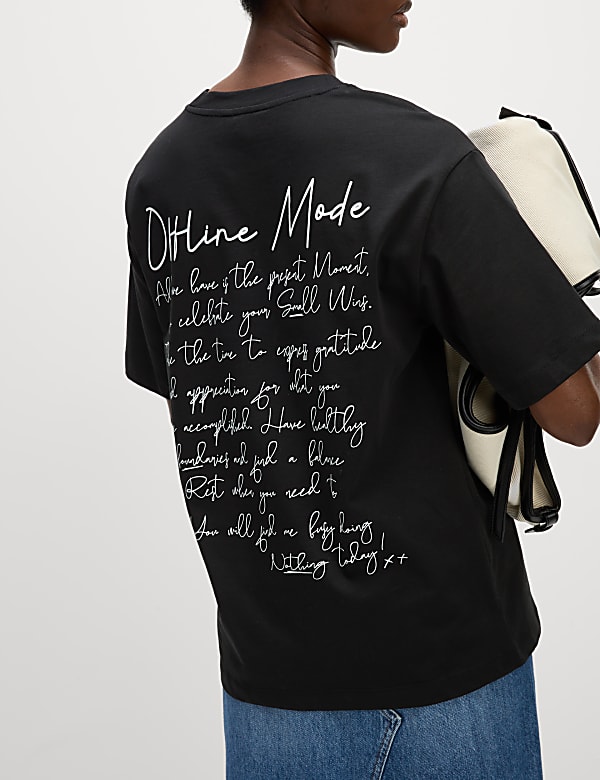 Offline Mode
we have is the present Moment,
celebrate your Small Wins.
the time to express gratitude
appreciation for what you
accomplished. Have healthy
boundaries and find a balance
Rest when you need to
You will find me busy doing
Nothing today! x+